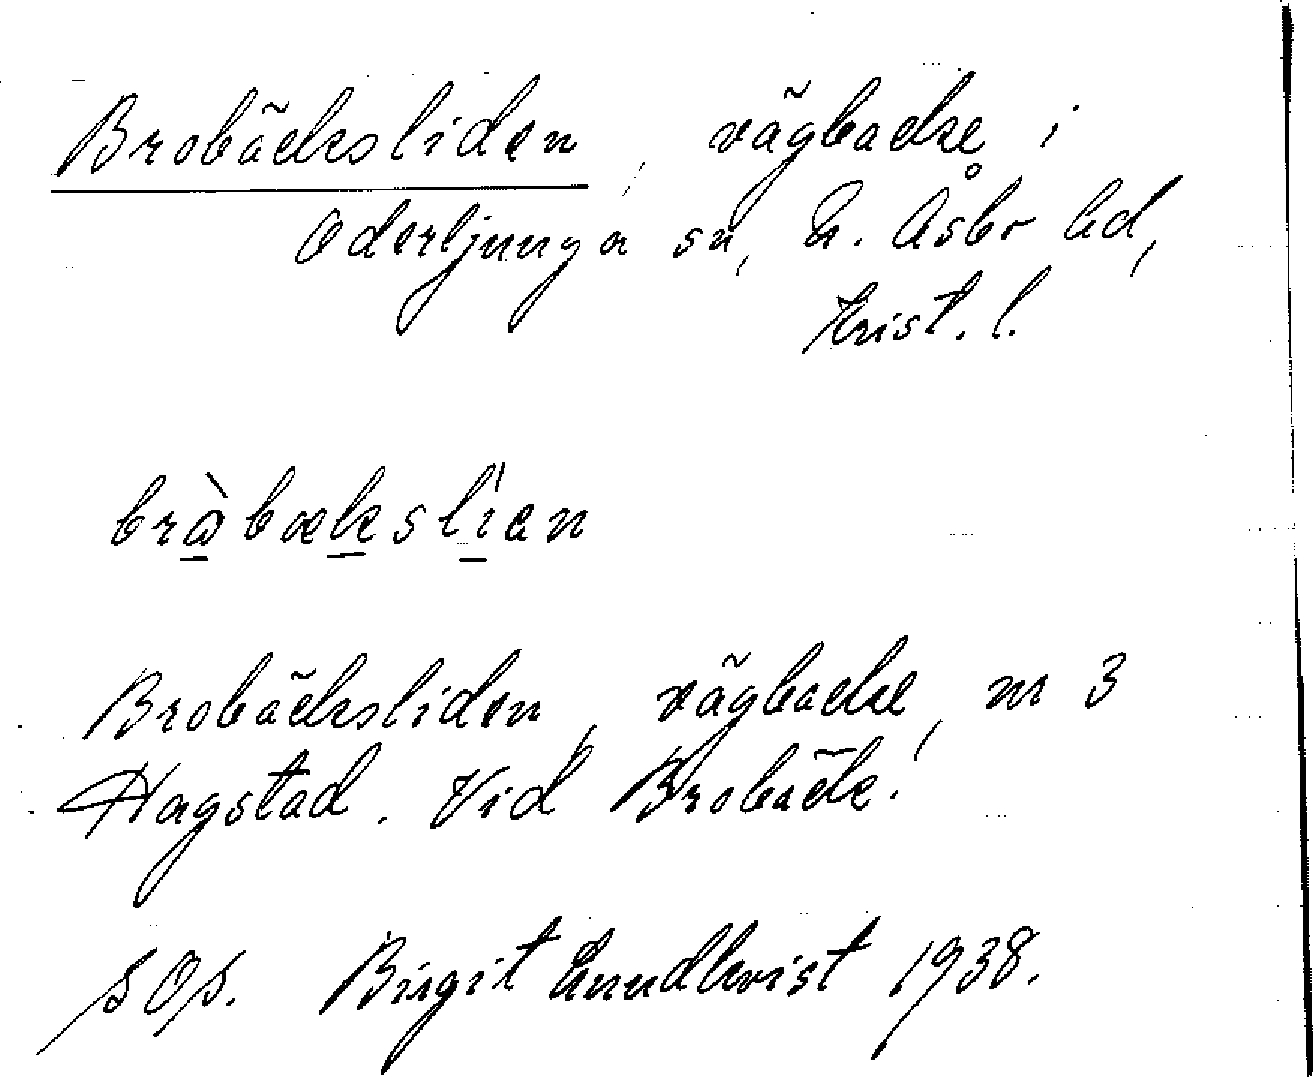 Brobäcksliden, vägbacke i
Oderljunga sn, N. Åsbo hd,
Krist. l.
bròbækslíen
Brobäcksliden, vägbacke, nr 3
Hagstad. Vid Brobäck.
SOS. Birgit Lundkvist 1938.